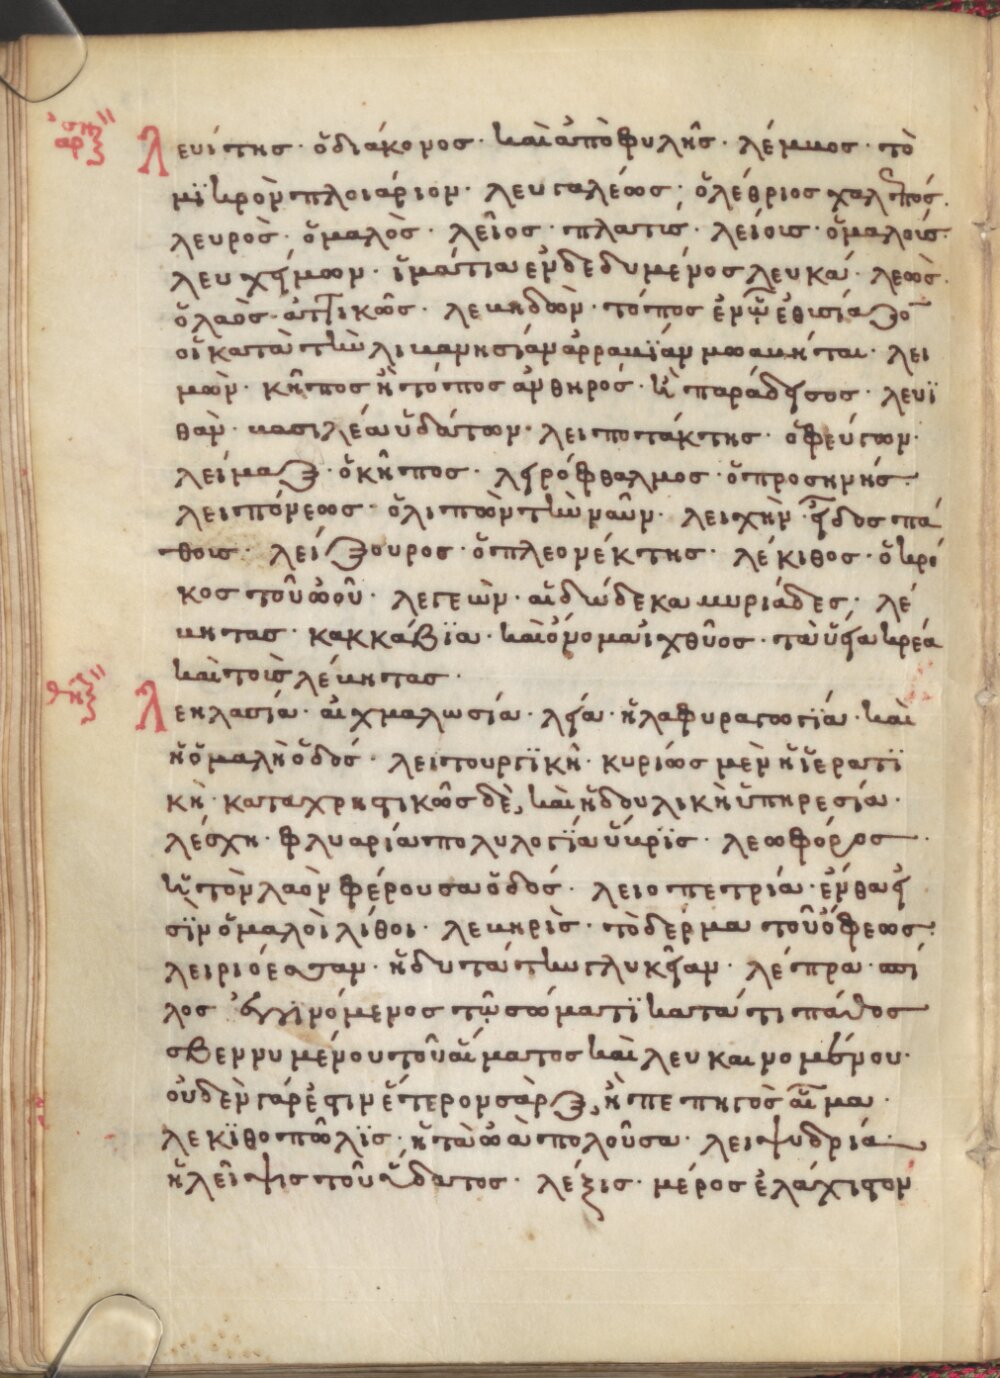 ἀρσενικ
Λευίτης · ὁ διάκονος · καὶ ἀπὸ φυλῆς · λέμβος · τὸ
μϊκρὸν πλοιάριον · λευγαλέως · ὀλέθριος χαλεπός.
λευρὸς · ὁμαλὸς · λεῖος · πλατις · λείοις · ὁμαλοῖς.
λευχήμων · ἱμάτια ἐνδεδυμένος λευκά · λεὼς.
ὁ λαὸς ἀττικῶς · λεβηδὼν · τόπος ἐν ᾧ ἐθυσίαζον
οἱ κατὰ τὴν λι
μὼν · κῆπος ἢ τόπος ἀνθηρός · ἢ παράδεισος · λευϊ
θὰν · βασιλέα ὑδάτων · λειποτάκτης · ὁ φεύγων.
λείμαξ · ὁ κῆπος · ληρόφθαλμος · ὁ προσηνής.
λειπόνεως · ὁ λιπὼν τὴν ναῦν · λειχὴν · εἶδος πά
θοις · λείζουρος · ὁ πλεονέκτης · λέκιθος · ὁ κρό
κος τοῦ ὠοῦ · λεγεὼν · αἱ δώδεκα μυριάδες · λέ
βητας · κακκάβϊα · καὶ ὄνομα ἰχθύος · τὰ ὕεια κρέα
καὶ τοὶς λέβητας ·
θηλυκ
Λεηλασία · αἰχμαλωσία · λεία · ἡ λαφυραγωγϊά · καὶ
ἡ ὁμαλὴ ὁδός · λειτουργϊκὴ · κυρίως μὲν ἡ ἱερατϊ
κὴ · καταχρηστικῶς δὲ, καὶ ἡ δουλικὴ ὑπηρεσία ·
λέσχη · φλυαρία πολυλογϊα ὕβρϊς · λεωφόρος
ἡ τὸν λαὸν φέρουσα ὁδός · λειοπετρία · ἔνθα εἰ
σϊν ὁμαλοὶ λίθοι · λεβηρὶς · τὸ δέρμα τοῦ ὄφεως.
λειριόεσσαν · ἡδυτάτην γλυκεῖαν · λέπρα · σπῖ
λος ἐγγινόμενος τῷ σώματϊ κατά τι πάθος
σβεννυμένου τοῦ αἵματος καὶ λευκαινομένου.
οὐδὲν γάρ ἐστιν ἕτερον σὰρξ, ἢ πεπηγὸς αἷμα ·
λεκϊθοπῶλϊς · ἡ τὰ ὠὰ πολοῦσα · λειψυδρία
ἡ λεῖψις τοῦ ὕδατος · λέξις · μέρος ἐλάχιστον